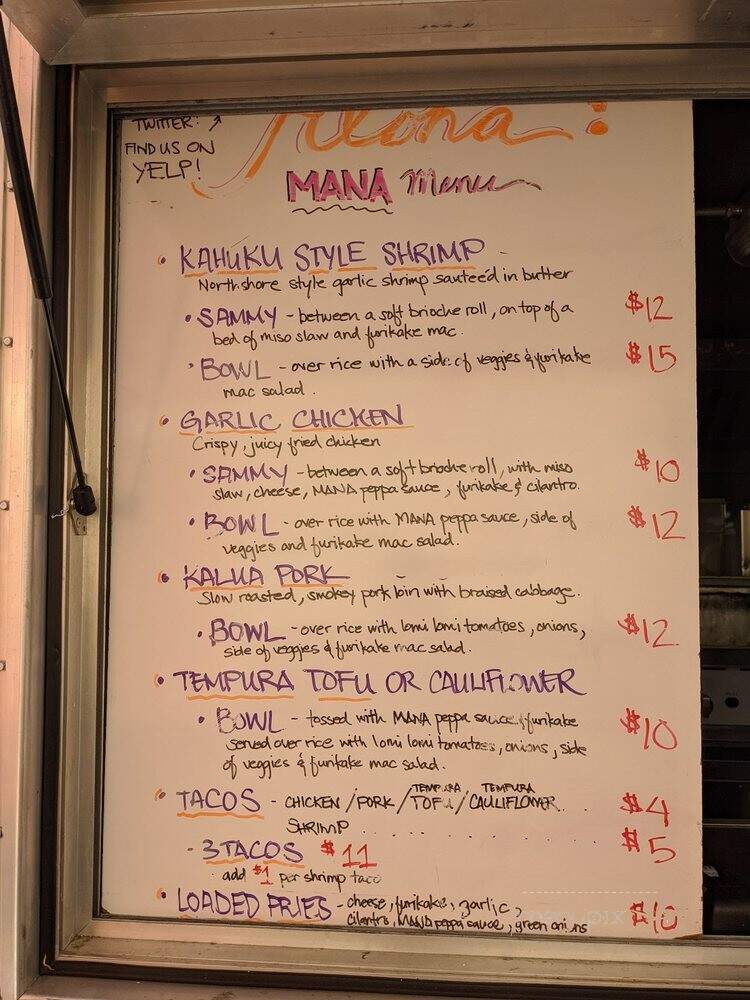 TWITTER: ↗
FIND US ON
YELP!
Aloha!
MANA Menu
• KAHUKU STYLE SHRIMP
North shore style garlic shrimp sauteéd in butter
• SAMMY - between a soft brioche roll, on top of a $12
bed of miso slaw and furikake mac.
• BOWL - over rice with a side of veggies & furikake $15
mac salad.
• GARLIC CHICKEN
Crispy, juicy fried chicken
• SAMMY - between a soft brioche roll, with miso $10
slaw, cheese, MANA peppa sauce, furikake & cilantro.
• BOWL - over rice with MANA peppa sauce, side of $12
veggies and furikake mac salad.
• KALUA PORK
Slow roasted, smokey pork loin with braised cabbage.
• BOWL - over rice with lomi lomi tomatoes, onions, $12
side of veggies & furikake mac salad.
• TEMPURA TOFU OR CAULIFLOWER
• BOWL - tossed with MANA peppa sauce, furikake $10
served over rice with lomi lomi tomatoes, onions, side
of veggies & furikake mac salad.
• TACOS - CHICKEN / PORK / TEMPURA TOFU / TEMPURA CAULIFLOWER . . $4
SHRIMP . . . . . . . $5
- 3 TACOS $11
add $1 per shrimp taco
• LOADED FRIES - cheese, furikake, garlic, $10
cilantro, MANA peppa sauce, green onions